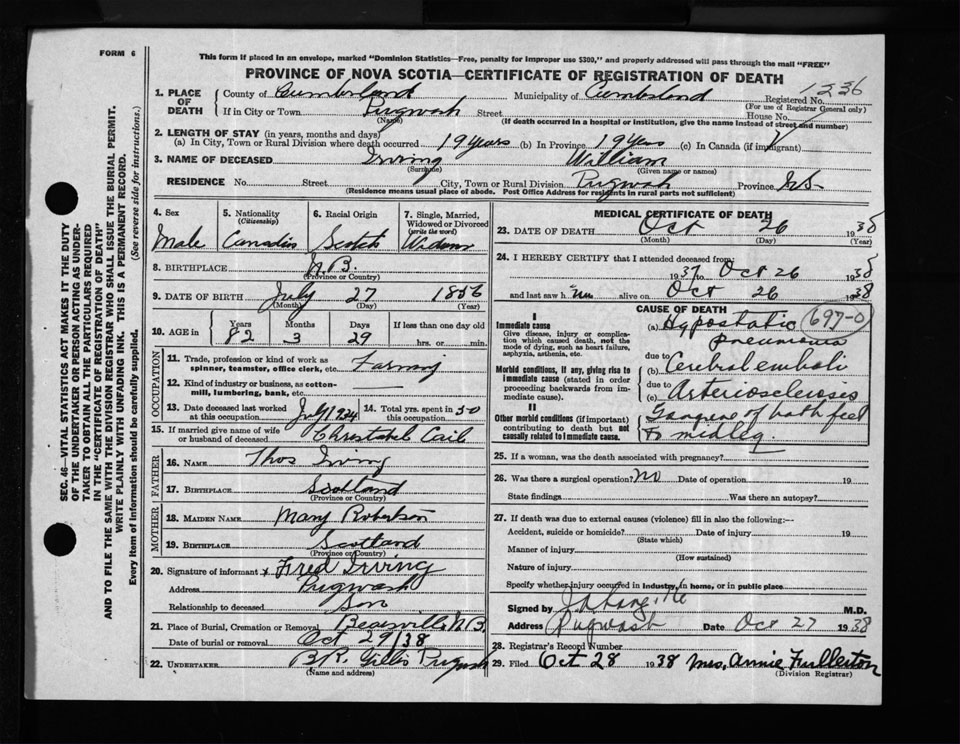 FORM 6
This form if placed in an envelope, marked "Dominion Statistics—Free, penalty for improper use $300," and properly addressed will pass through the mail "FREE"
PROVINCE OF NOVA SCOTIA—CERTIFICATE OF REGISTRATION OF DEATH
1. PLACE OF DEATH County of Cumberland Municipality of Cumberland Registered No. 1236
(For use of Registrar General only)
If in City or Town Pugwash Street House No.
(Name) (If death occurred in a hospital or institution, give the name instead of street and number)
2. LENGTH OF STAY (in years, months and days)
(a) In City, Town or Rural Division where death occurred 19 years (b) In Province 19 years (c) In Canada (if immigrant)
3. NAME OF DECEASED Irving William
(Surname) (Given name or names)
RESIDENCE No. Street City, Town or Rural Division Pugwash Province N.S.
(Residence means usual place of abode. Post Office Address for residents in rural parts not sufficient)
4. Sex 5. Nationality (Citizenship) 6. Racial Origin 7. Single, Married, Widowed or Divorced (write the word)
Male Scotch
8. BIRTHPLACE N.B.
(Province or Country)
9. DATE OF BIRTH July 27 1856
(Month) (Day) (Year)
10. AGE in Years Months Days If less than one day old
82 3 29 hrs. or min.
OCCUPATION
11. Trade, profession or kind of work as spinner, teamster, office clerk, etc. Farming
12. Kind of industry or business, as cotton-mill, lumbering, bank, etc.
13. Date deceased last worked at this occupation July 1934 14. Total yrs. spent in this occupation 50
15. If married give name of wife or husband of deceased
FATHER
16. NAME Thos Irving
17. BIRTHPLACE Scotland
(Province or Country)
MOTHER
18. MAIDEN NAME Mary Robertson
19. BIRTHPLACE Scotland
(Province or Country)
20. Signature of informant x Fred Irving
Address Pugwash
Relationship to deceased Son
21. Place of Burial, Cremation or Removal N.B.
Date of burial or removal Oct 29/38
22. UNDERTAKER B.R. Gillis Pugwash
(Name and address)
MEDICAL CERTIFICATE OF DEATH
23. DATE OF DEATH Oct 26 1938
(Month) (Day) (Year)
24. I HEREBY CERTIFY that I attended deceased from
1937 to Oct 26 1938
and last saw him alive on Oct 26 1938
CAUSE OF DEATH
I
Immediate cause
Give disease, injury or complication which caused death, not the mode of dying, such as heart failure, asphyxia, asthenia, etc.
(a) Hypostatic pneumonia
697-0
Morbid conditions, if any, giving rise to immediate cause (stated in order proceeding backwards from immediate cause).
due to
(b) Cerebral emboli
due to
(c) Arteriosclerosis
II
Other morbid conditions (if important) contributing to death but not causally related to immediate cause.
Gangrene of both feet
to midleg.
25. If a woman, was the death associated with pregnancy?
26. Was there a surgical operation? No Date of operation 19
State findings Was there an autopsy?
27. If death was due to external causes (violence) fill in also the following:—
Accident, suicide or homicide? Date of injury 19
(State which)
Manner of injury
(How sustained)
Nature of injury
Specify whether injury occurred in industry, in home, or in public place
Signed by M.D.
Address Pugwash Date Oct 27 1938
28. Registrar's Record Number
29. Filed Oct 28 1938 Mrs. Annie Fullerton
(Division Registrar)
SEC. 46—VITAL STATISTICS ACT MAKES IT THE DUTY OF THE UNDERTAKER OR PERSON ACTING AS UNDERTAKER TO OBTAIN ALL THE PARTICULARS REQUIRED IN THE "CERTIFICATE OF REGISTRATION OF DEATH"
AND TO FILE THE SAME WITH THE DIVISION REGISTRAR WHO SHALL ISSUE THE BURIAL PERMIT.
WRITE PLAINLY WITH UNFADING INK. THIS IS A PERMANENT RECORD.
Every item of information should be carefully supplied. (See reverse side for instructions.)